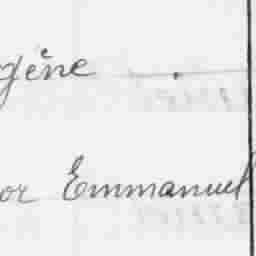 gène .
or Emmanuel